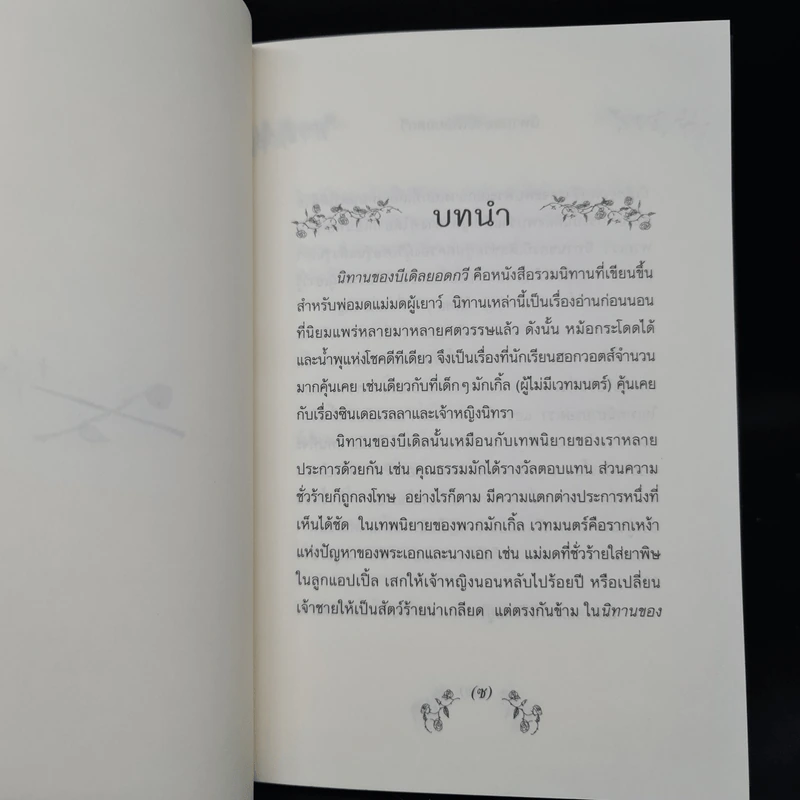 บทนำ
นิทานของบีเดิลยอดกวี คือหนังสือรวมนิทานที่เขียนขึ้น
สำหรับพ่อมดแม่มดผู้เยาว์ นิทานเหล่านี้เป็นเรื่องอ่านก่อนนอน
ที่นิยมแพร่หลายมาหลายศตวรรษแล้ว ดังนั้น หม้อกระโดดได้
และน้ำพุแห่งโชคดีทีเดียว จึงเป็นเรื่องที่นักเรียนฮอกวอตส์จำนวน
มากคุ้นเคย เช่นเดียวกับที่เด็กๆ มักเกิ้ล (ผู้ไม่มีเวทมนตร์) คุ้นเคย
กับเรื่องซินเดอเรลลาและเจ้าหญิงนิทรา
นิทานของบีเดิลนั้นเหมือนกับเทพนิยายของเราหลาย
ประการด้วยกัน เช่น คุณธรรมมักได้รางวัลตอบแทน ส่วนความ
ชั่วร้ายก็ถูกลงโทษ อย่างไรก็ตาม มีความแตกต่างประการหนึ่งที่
เห็นได้ชัด ในเทพนิยายของพวกมักเกิ้ล เวทมนตร์คือรากเหง้า
แห่งปัญหาของพระเอกและนางเอก เช่น แม่มดที่ชั่วร้ายใส่ยาพิษ
ในลูกแอปเปิ้ล เสกให้เจ้าหญิงนอนหลับไปร้อยปี หรือเปลี่ยน
เจ้าชายให้เป็นสัตว์ร้ายน่าเกลียด แต่ตรงกันข้าม ในนิทานของ
(ซ)